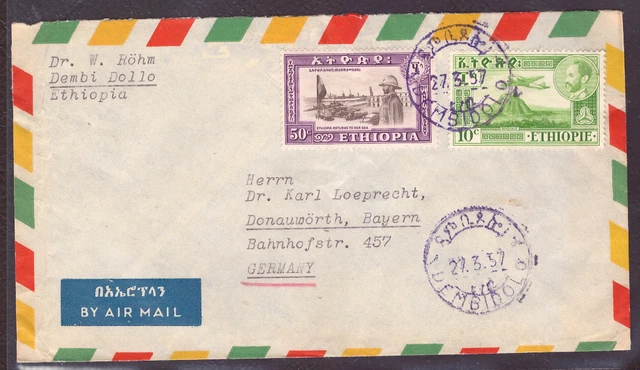 Dr. W. Röhm
Dembi Dollo
Ethiopia
ኢትዮጵያ
ETHIOPIA RETURNS TO HER SEA
50c ETHIOPIA
ኢትዮጵያ
10c ETHIOPIE
27.3.57
DEMBIDOLO
Herrn
Dr. Karl Loeprecht,
Donauwörth, Bayern
Bahnhofstr. 457
GERMANY
27.3.57
DEMBIDOLO
በአኤሮፕላን
BY AIR MAIL